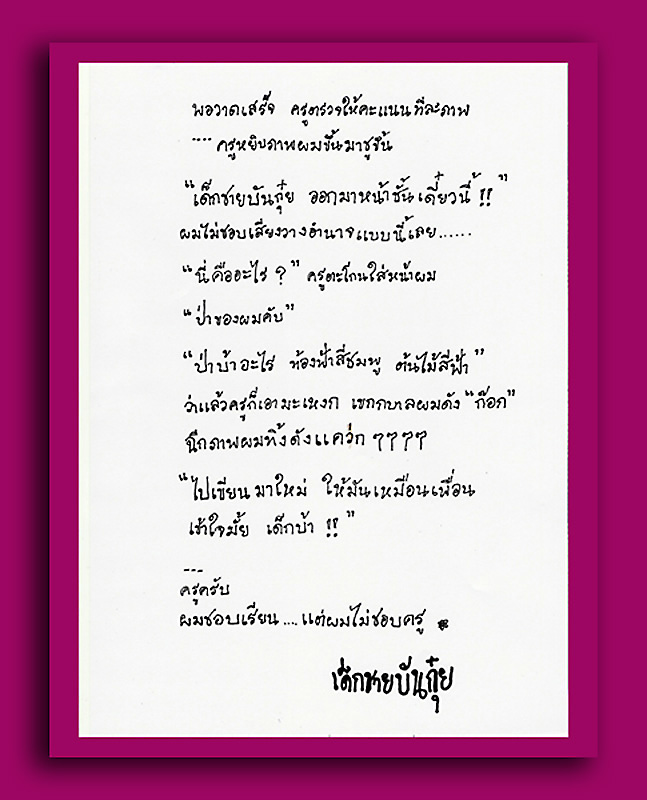 พอวาดเสร็จ ครูตรวจให้คะแนนทีละภาพ
.... ครูหยิบภาพผมขึ้นมาชูขึ้น
“เด็กชายบันกุ๋ย ออกมาหน้าชั้นเดี๋ยวนี้ !!”
ผมไม่ชอบเสียงวางอำนาจแบบนี้เลย......
“นี่คืออะไร ?” ครูตะโกนใส่หน้าผม
“ป่าของผมคับ”
“ป่าบ้าอะไร ท้องฟ้าสีชมพู ต้นไม้สีฟ้า”
ว่าแล้วครูก็เอามะเหงก เขกกบาลผมดัง “ก๊อก”
ฉีกภาพผมทิ้งดังแคว่ก ๆๆๆๆ
“ไปเขียนมาใหม่ ให้มันเหมือนเพื่อน
เข้าใจมั้ย เด็กบ้า !!”
---
ครูครับ
ผมชอบเรียน .... แต่ผมไม่ชอบครู
เด็กชายบันกุ๋ย